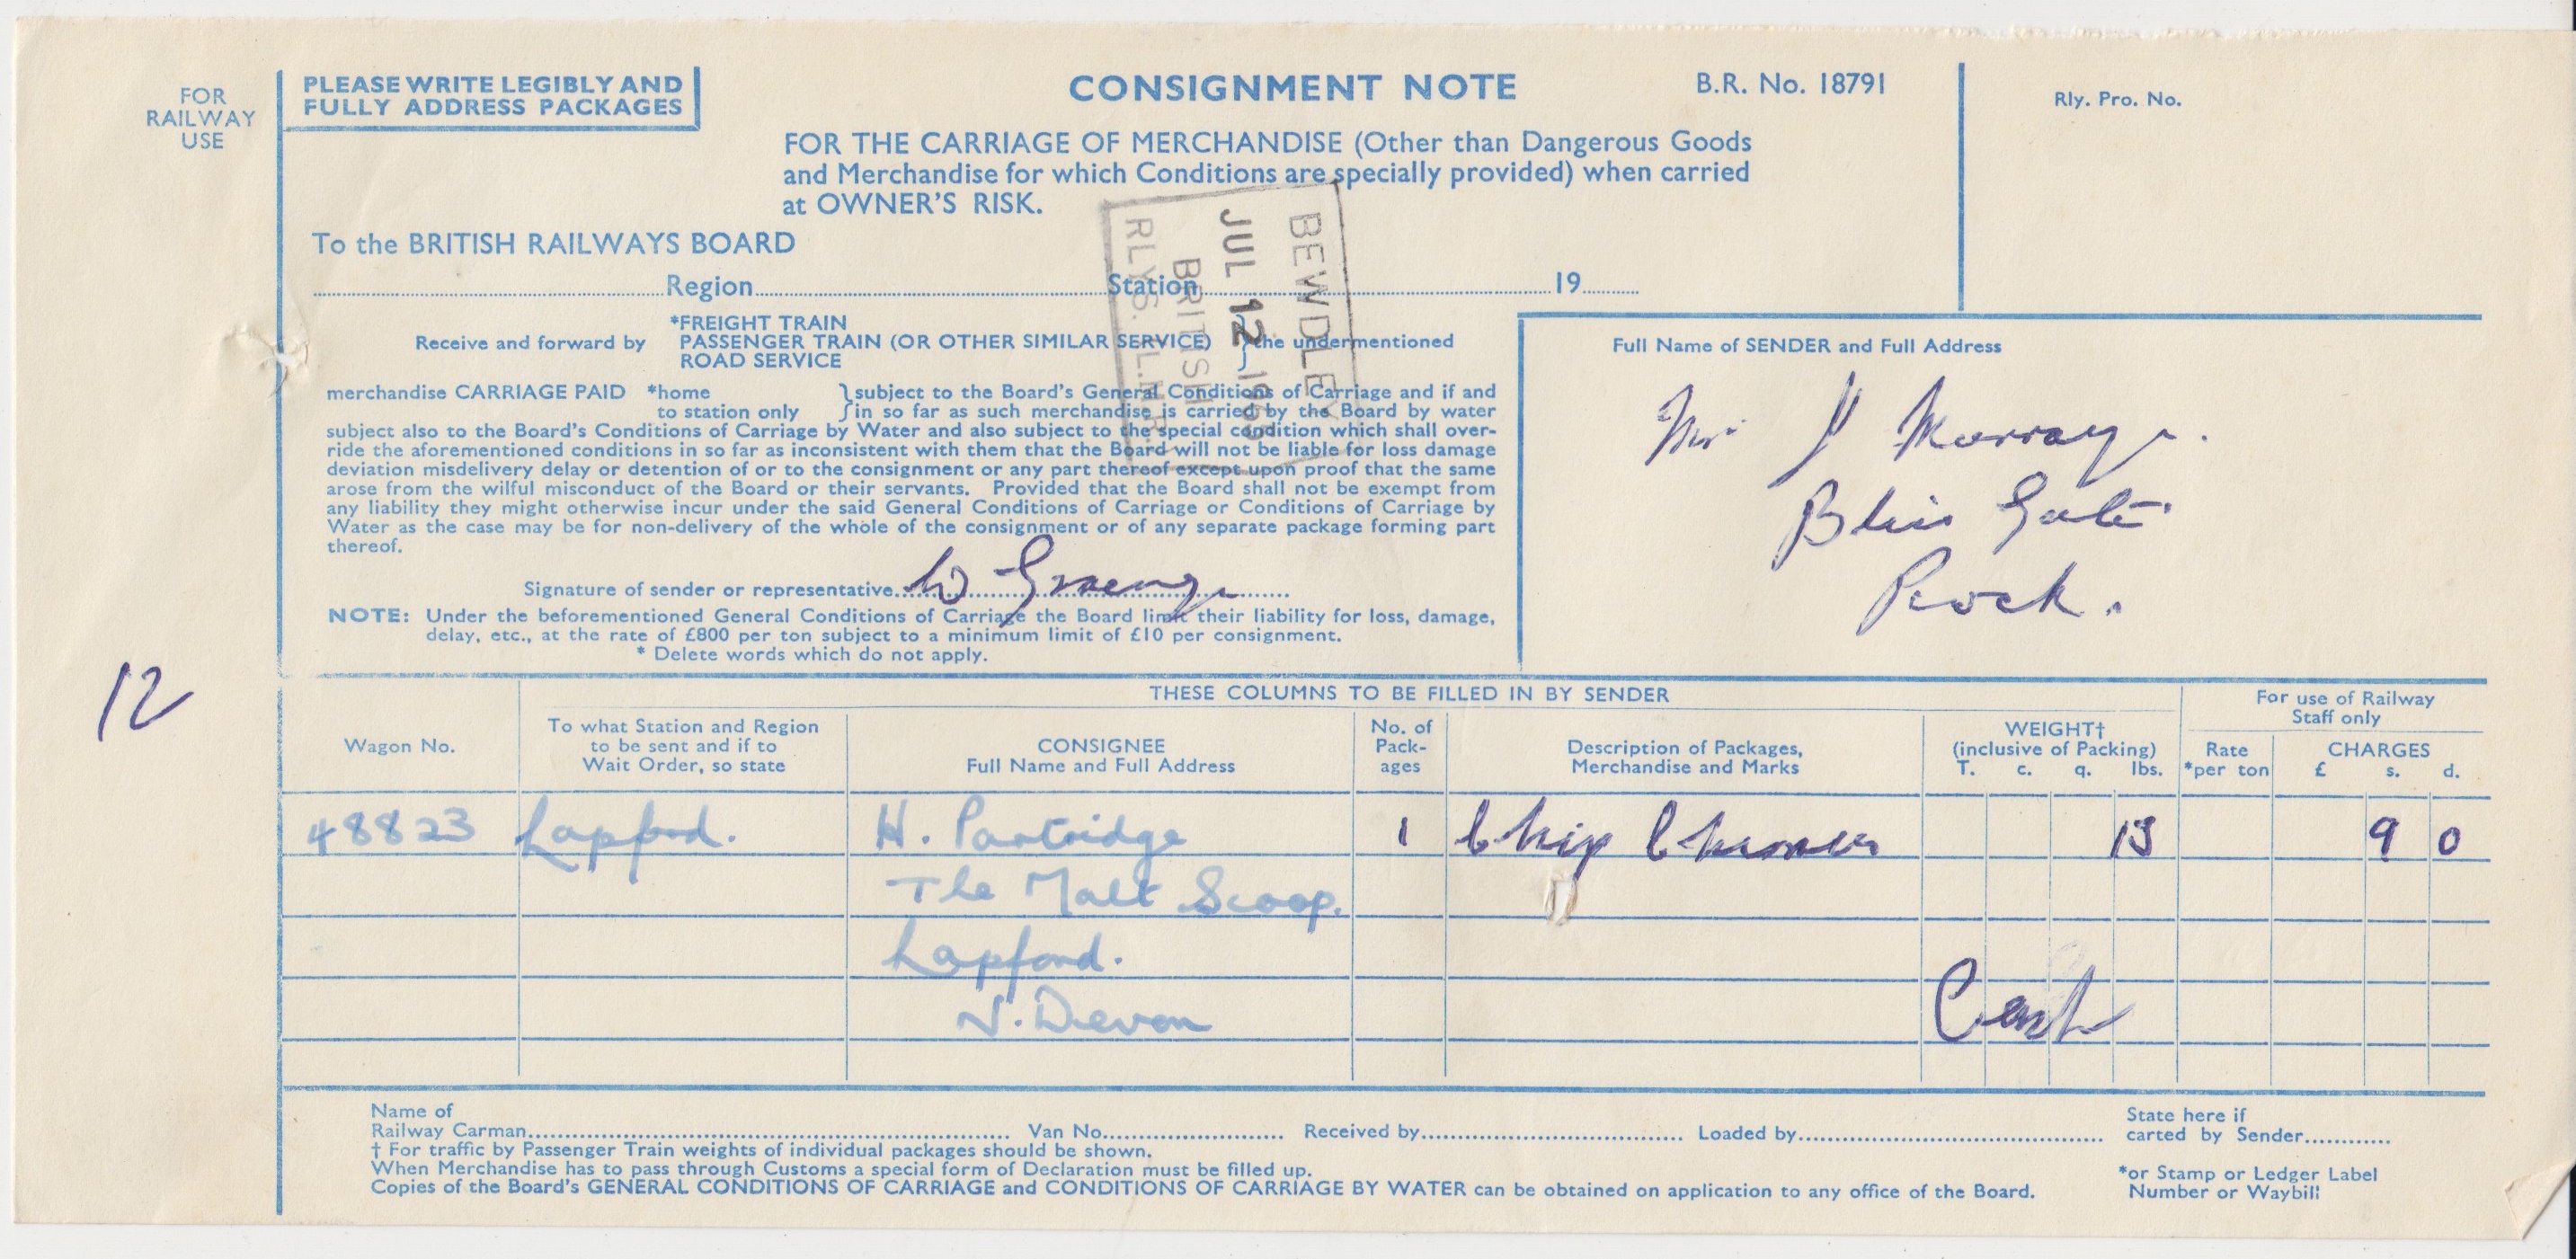 FOR
RAILWAY
USE
PLEASE WRITE LEGIBLY AND
FULLY ADDRESS PACKAGES
CONSIGNMENT NOTE
B.R. No. 18791
Rly. Pro. No.
FOR THE CARRIAGE OF MERCHANDISE (Other than Dangerous Goods
and Merchandise for which Conditions are specially provided) when carried
at OWNER'S RISK.
To the BRITISH RAILWAYS BOARD
Region Station 19
BEWDLEY
JUL 12
BRITISH
RLYS.
Receive and forward by
*FREIGHT TRAIN
PASSENGER TRAIN (OR OTHER SIMILAR SERVICE)
ROAD SERVICE
} the undermentioned
merchandise CARRIAGE PAID *home
to station only
} subject to the Board's General Conditions of Carriage and if and
in so far as such merchandise is carried by the Board by water
subject also to the Board's Conditions of Carriage by Water and also subject to the special condition which shall over-
ride the aforementioned conditions in so far as inconsistent with them that the Board will not be liable for loss damage
deviation misdelivery delay or detention of or to the consignment or any part thereof except upon proof that the same
arose from the wilful misconduct of the Board or their servants. Provided that the Board shall not be exempt from
any liability they might otherwise incur under the said General Conditions of Carriage or Conditions of Carriage by
Water as the case may be for non-delivery of the whole of the consignment or of any separate package forming part
thereof.
Signature of sender or representative W
NOTE: Under the beforementioned General Conditions of Carriage the Board limit their liability for loss, damage,
delay, etc., at the rate of £800 per ton subject to a minimum limit of £10 per consignment.
* Delete words which do not apply.
Full Name of SENDER and Full Address
Mr J Murray
Gate
Rock.
12
THESE COLUMNS TO BE FILLED IN BY SENDER
For use of Railway
Staff only
Wagon No.
To what Station and Region
to be sent and if to
Wait Order, so state
CONSIGNEE
Full Name and Full Address
No. of
Pack-
ages
Description of Packages,
Merchandise and Marks
WEIGHT†
(inclusive of Packing)
T. c. q. lbs.
Rate
*per ton
CHARGES
£ s. d.
48823 Lapford. H. Partridge 1 Chip 13 9 0
The Malt Scoop.
Lapford.
N. Devon
Name of
Railway Carman Van No. Received by Loaded by
State here if
carted by Sender
† For traffic by Passenger Train weights of individual packages should be shown.
When Merchandise has to pass through Customs a special form of Declaration must be filled up.
Copies of the Board's GENERAL CONDITIONS OF CARRIAGE and CONDITIONS OF CARRIAGE BY WATER can be obtained on application to any office of the Board.
*or Stamp or Ledger Label
Number or Waybill